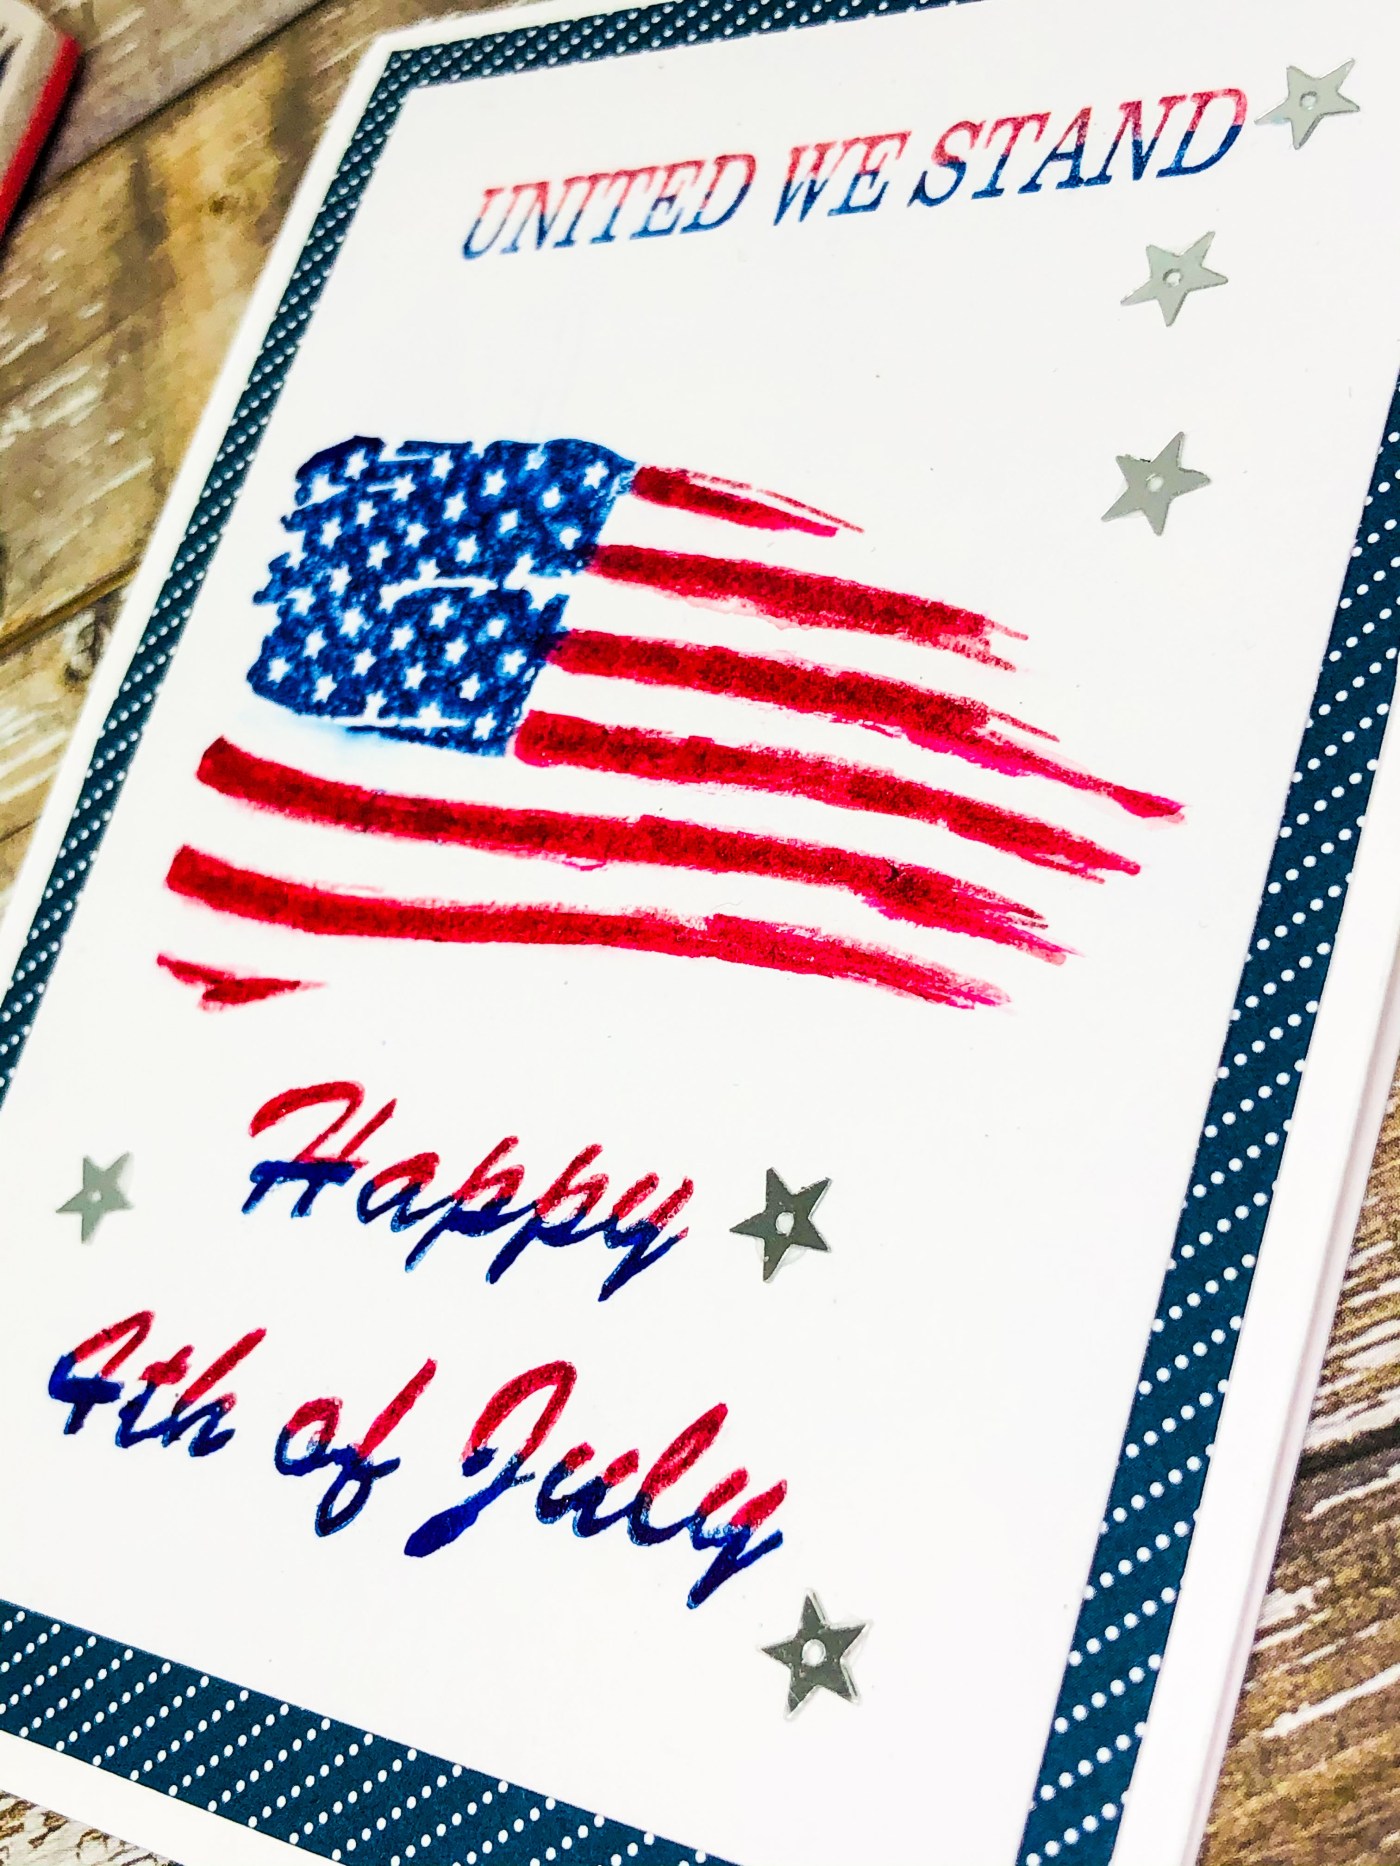 UNITED WE STAND
Happy
4th of July